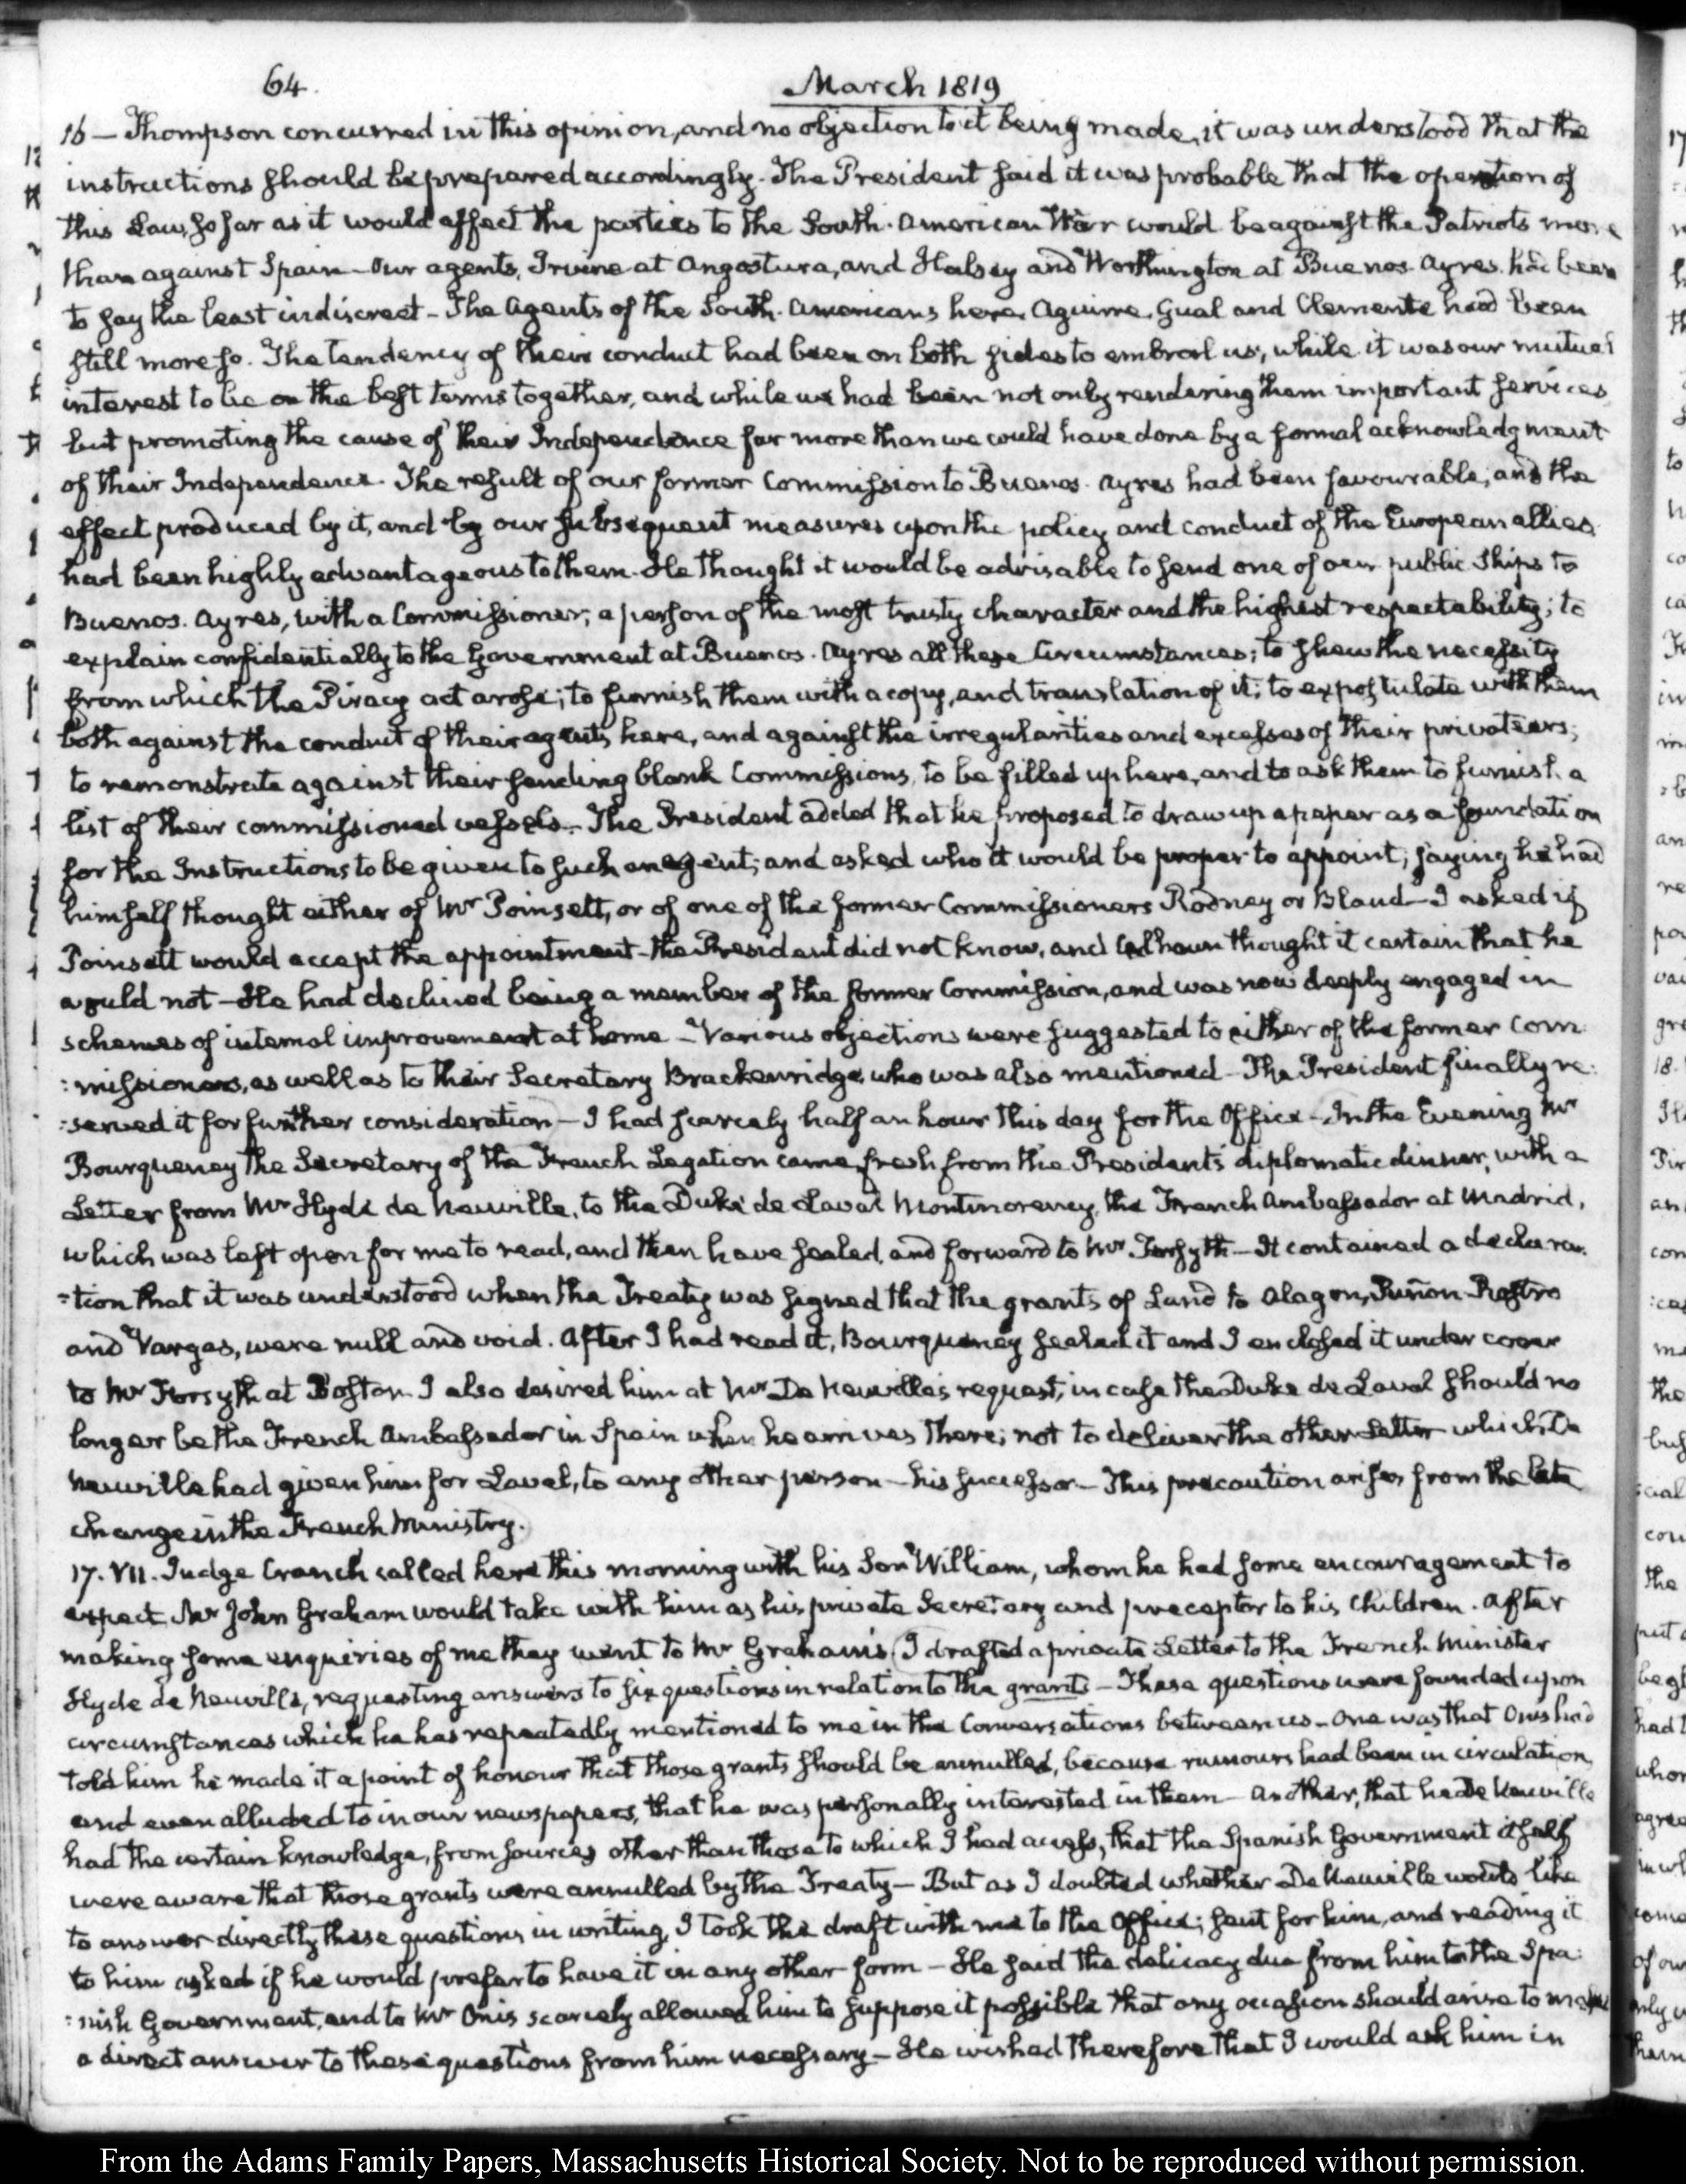 64.
March 1819
16 — Thompson concurred in this opinion, and no objection to it being made, it was understood that the
instructions should be prepared accordingly. The President said it was probable that the operation of
this Law, so far as it would affect the parties to the South. American War would be against the Patriots more
than against Spain — Our agents, Irvine at Angostura, and Halsey and Worthington at Buenos Ayres had been
to say the least indiscreet — The Agents of the South. Americans here, Aguirre, Gual and Clemente had been
still more so. The tendency of their conduct had been on both sides to embroil us, while it was our mutual
interest to be on the best terms together, and while we had been not only rendering them important services,
but promoting the cause of their Independence far more than we could have done by a formal acknowledgment
of their Independence. The result of our former Commission to Buenos. Ayres had been favourable, and the
effect produced by it, and by our subsequent measures upon the policy and conduct of the European allies
had been highly advantageous to them. He thought it would be advisable to send one of our public Ships to
Buenos. Ayres, with a Commissioner; a person of the most trusty character and the highest respectability; to
explain confidentially to the Government at Buenos. Ayres all these Circumstances; to shew the necessity
from which the Piracy act arose; to furnish them with a copy, and translation of it; to expostulate with them
both against the conduct of their agents here, and against the irregularities and excesses of their privateers;
to remonstrate against their sending blank Commissions, to be filled up here, and to ask them to furnish a
list of their commissioned vessels. — The President added that he proposed to draw up a paper as a foundation
for the Instructions to be given to such an agent; and asked who it would be proper to appoint; saying he had
himself thought either of Mr Poinsett, or of one of the former Commissioners Rodney or Bland — I asked if
Poinsett would accept the appointment — the President did not know, and Calhoun thought it certain that he
would not — He had declined being a member of the former Commission, and was now deeply engaged in
schemes of internal improvement at home — Various objections were suggested to either of the former Com
:missioners, as well as to their Secretary Brackenridge, who was also mentioned — The President finally re:
:served it for further consideration — I had scarcely half an hour this day for the Office — In the Evening Mr
Bourqueney the Secretary of the French Legation came, fresh from the President's diplomatic dinner, with a
Letter from Mr Hyde de Neuville, to the Duke de Laval Montmorency, the French Ambassador at Madrid,
which was left open for me to read, and then have sealed, and forward to Mr Forsyth — It contained a declara:
:tion that it was understood when the Treaty was signed that the grants of Land to Alagon, Puñon-Rostro
and Vargas, were null and void. After I had read it, Bourqueney sealed it and I enclosed it under cover
to Mr Forsyth at Boston. I also desired him at Mr De Neuville's request, in case the Duke de Laval should no
longer be the French Ambassador in Spain when he arrives there; not to deliver the other Letter which De
Neuville had given him for Laval, to any other person — his successor — This precaution arises from the late
change in the French Ministry.
17. VII. Judge Cranch called here this morning with his Son William, whom he had some encouragement to
expect Mr John Graham would take with him as his private Secretary and preceptor to his Children. After
making some enquiries of me they went to Mr Graham's. I drafted a private Letter to the French Minister
Hyde de Neuville, requesting answers to six questions in relation to the grants — These questions were founded upon
circumstances which he has repeatedly mentioned to me in the Conversations between us — One was that Onis had
told him he made it a point of honour that those grants should be annulled, because rumours had been in circulation,
and even alluded to in our newspapers, that he was personally interested in them — Another, that he De Neuville
had the certain knowledge, from sources other than those to which I had access, that the Spanish Government itself
were aware that those grants were annulled by the Treaty — But as I doubted whether De Neuville would like
to answer directly these questions in writing, I took the draft with me to the Office; sent for him, and reading it
to him asked if he would prefer to have it in any other form — He said the delicacy due from him to the Spa:
:nish Government, and to Mr Onis scarcely allowed him to suppose it possible that any occasion should arise to make
a direct answer to these questions from him necessary — He wished therefore that I would ask him in
From the Adams Family Papers, Massachusetts Historical Society. Not to be reproduced without permission.